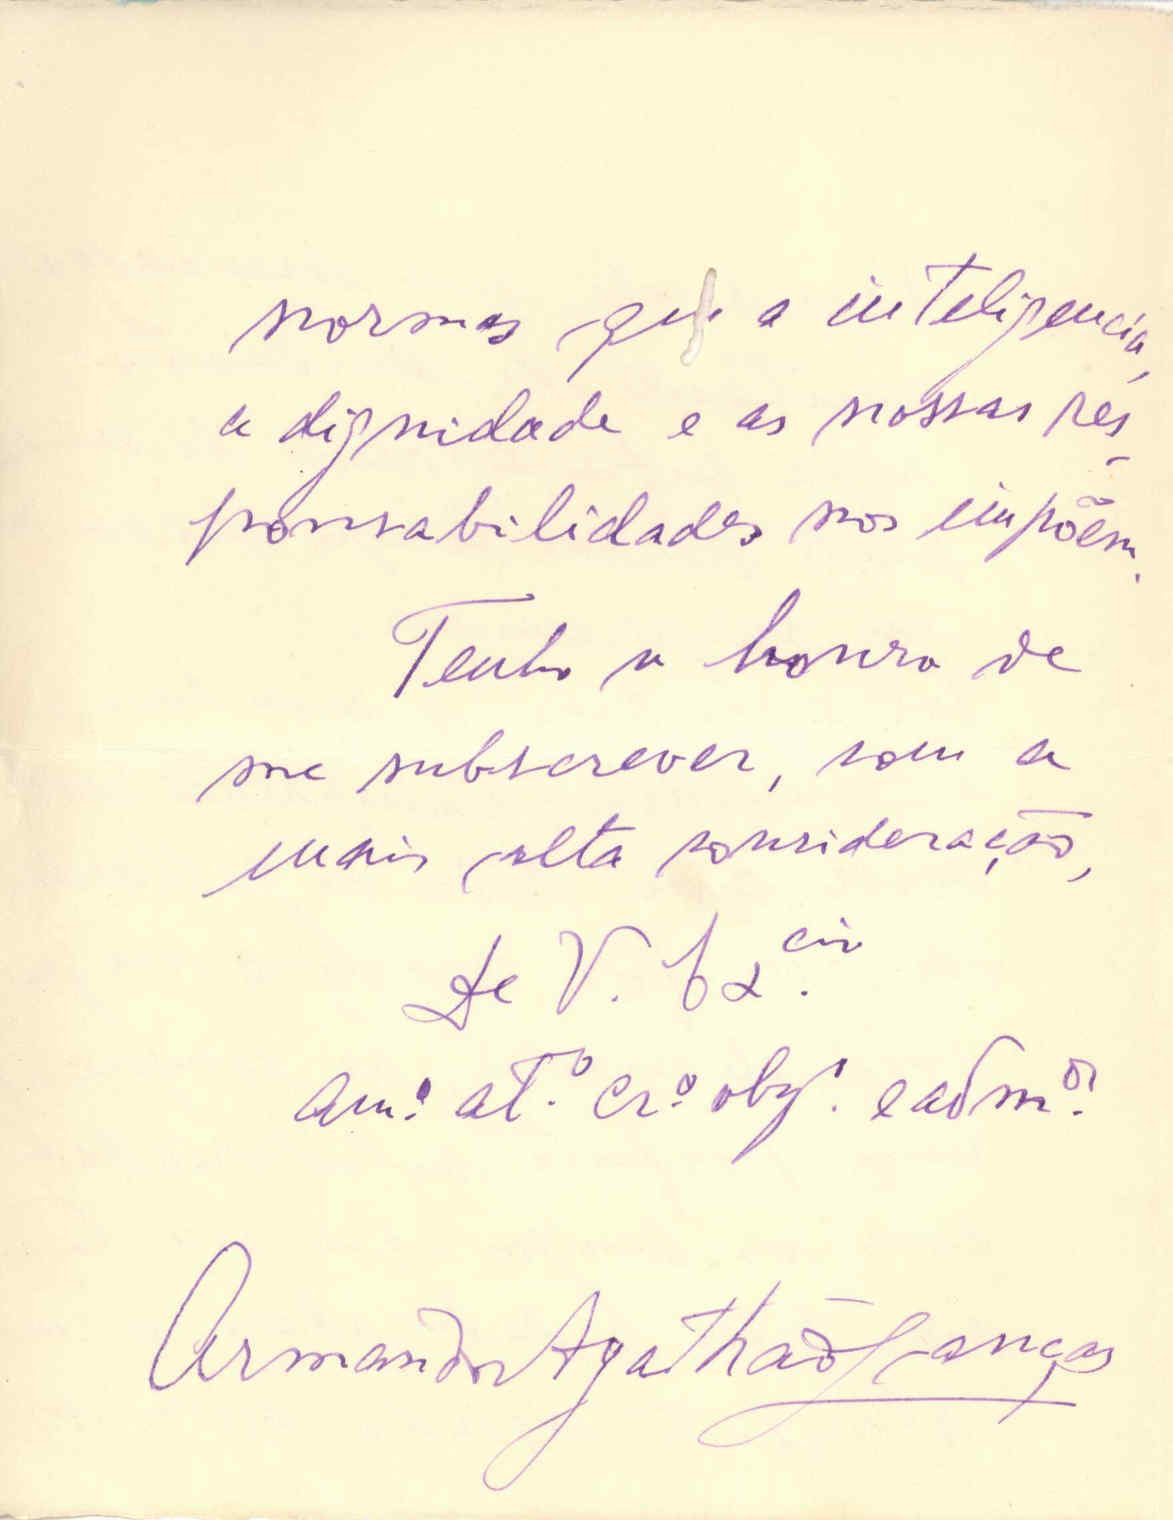 normas que a inteligencia,
a dignidade e as nossas res-
ponsabilidades nos impõem.
Tenho a honra de
me subscrever, com a
mais alta consideração,
De V. Ex.cia
am.º at.º cr.º obg.º e adm.or
Armando Agathão